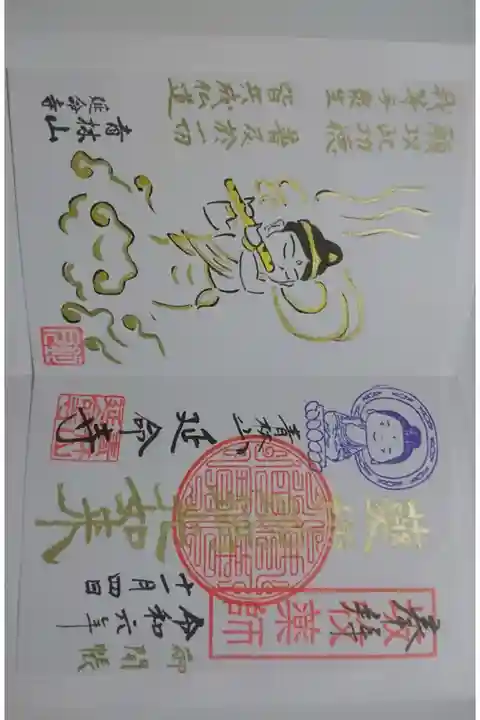 御開帳
令和六年
十一月四日
薬師如来
青林山
延命寺
願以此功徳
普及於一切
我等与衆生
皆共成仏道
青林山
延命寺